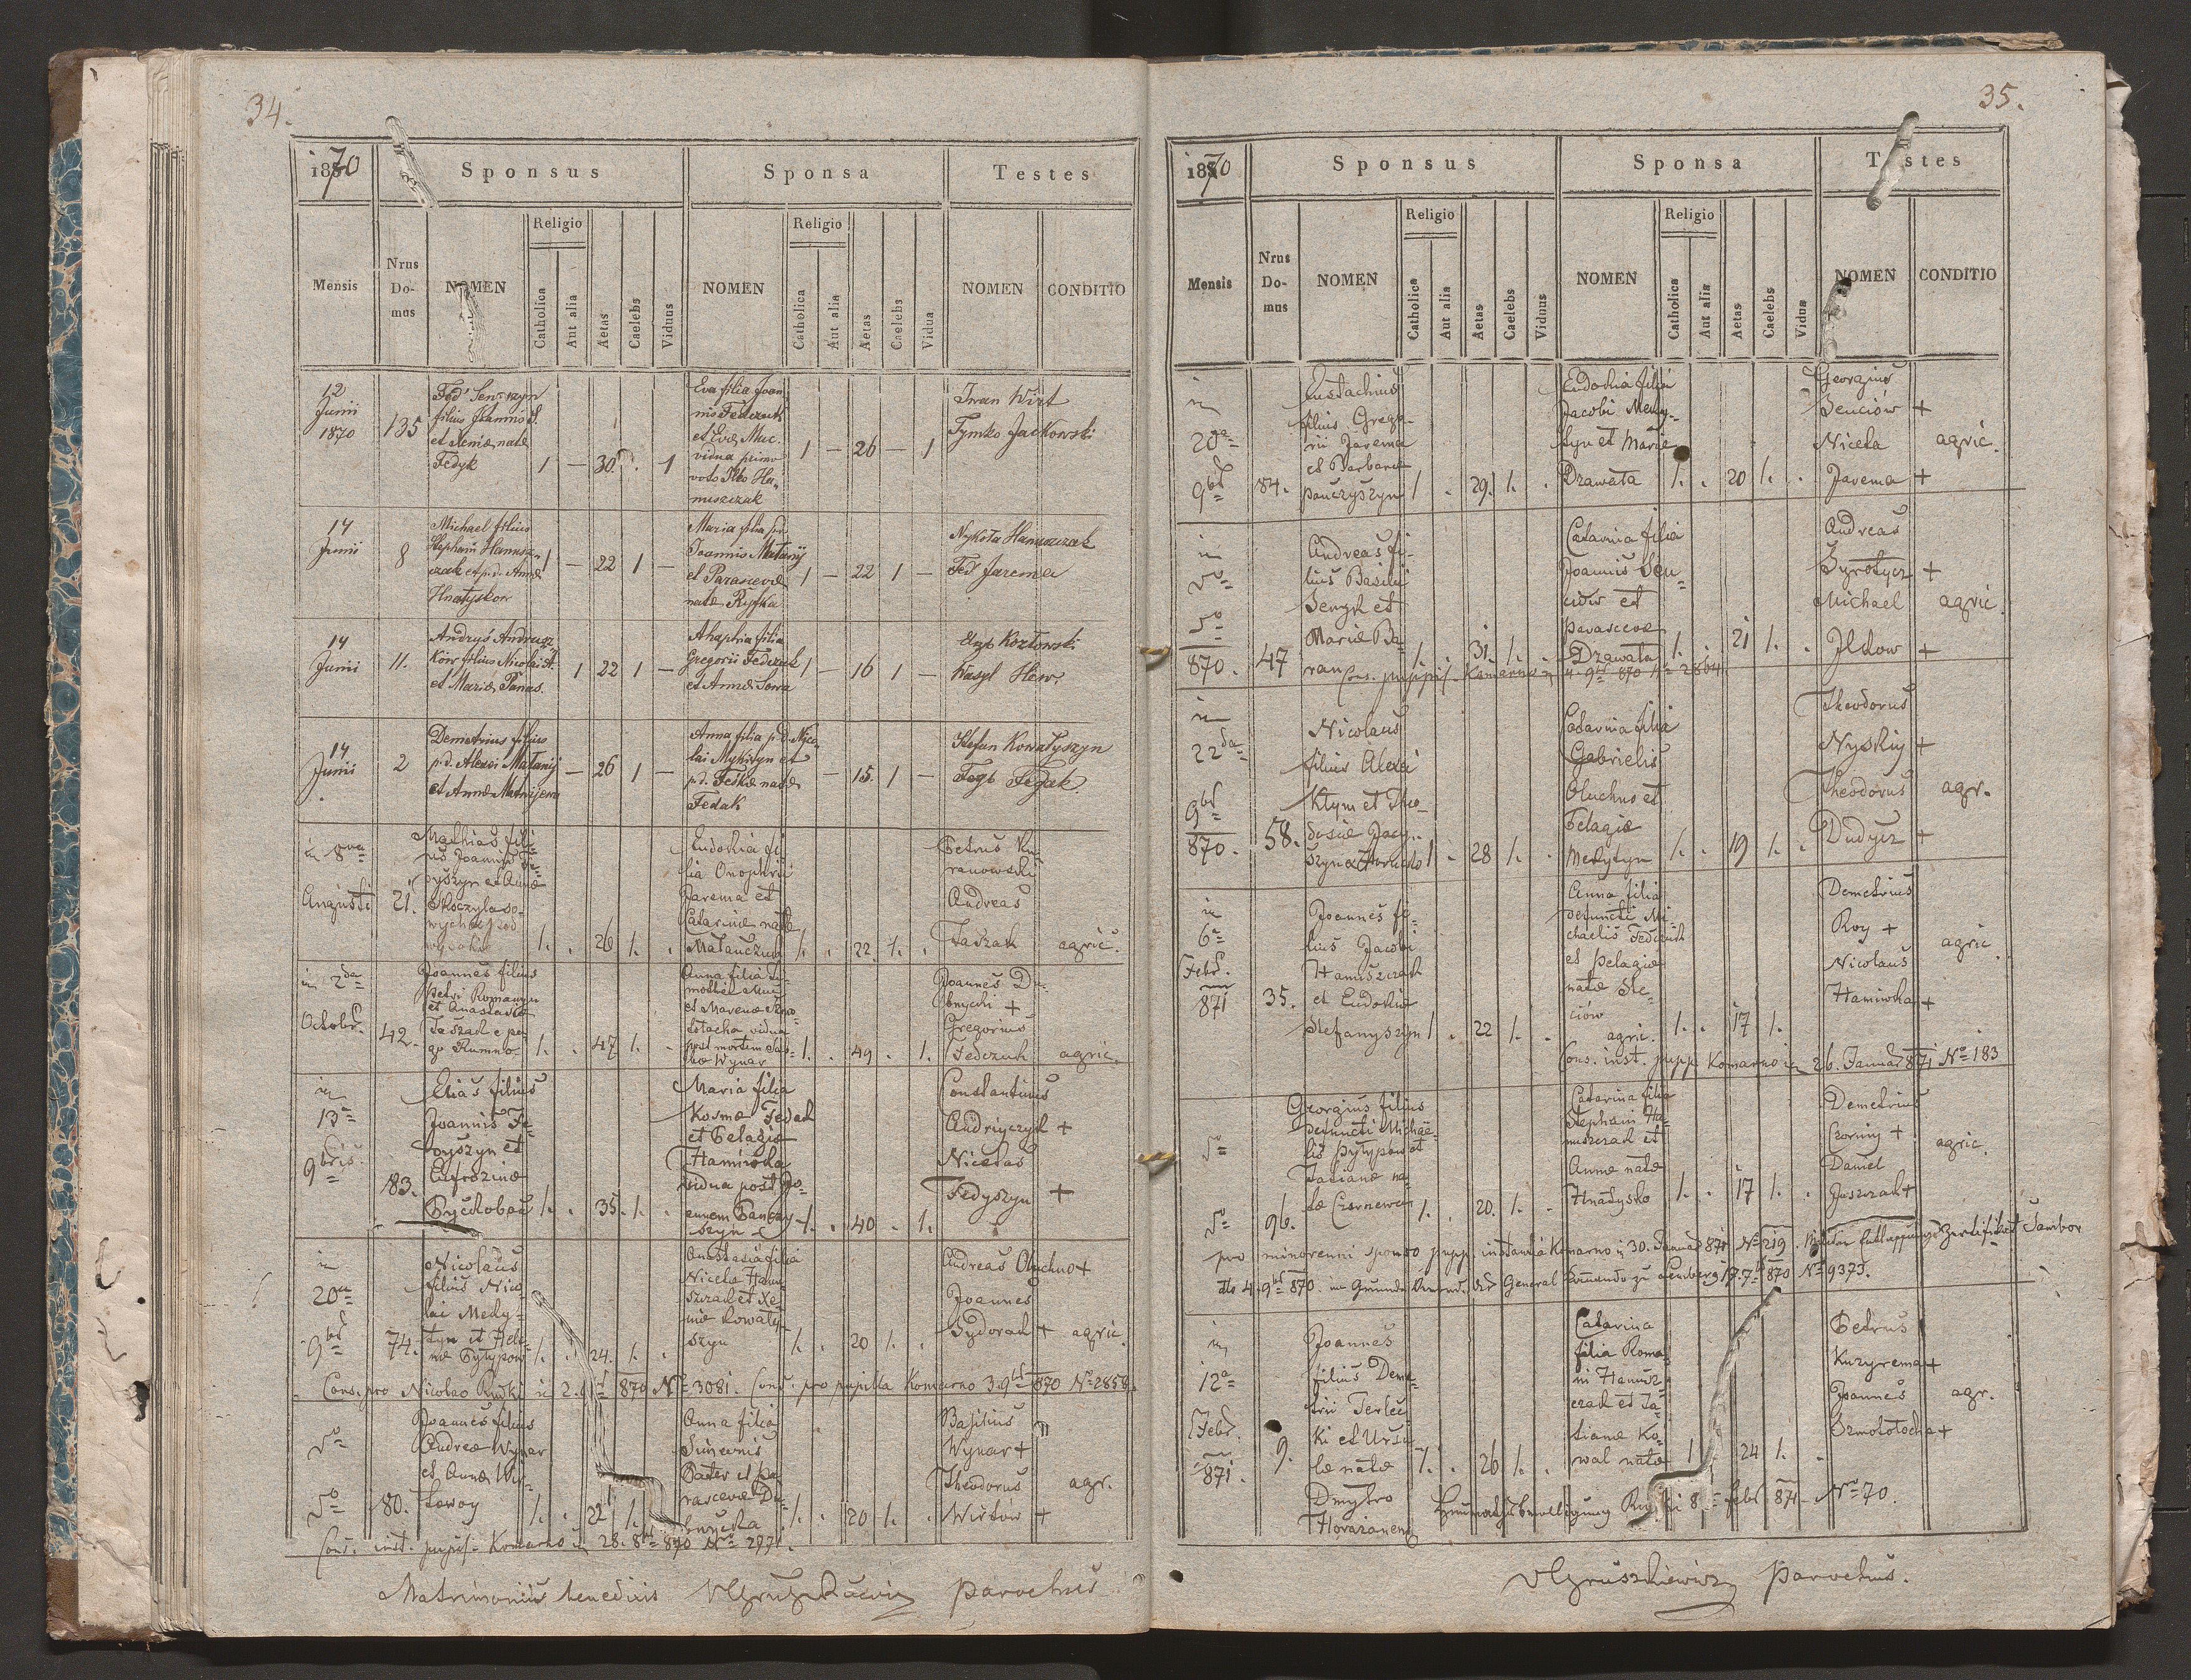 34.
1870
Sponsus
Sponsa
Testes
Mensis
Nrus Domus
NOMEN
Religio
Catholica
Aut alia
Aetas
Caelebs
Viduus
NOMEN
Religio
Catholica
Aut alia
Aetas
Caelebs
Vidua
NOMEN
CONDITIO
12 Junii 1870
135
filius Joannis
et Xeniæ natæ
Fedyk
1 — 30. 1
Eva filia Joan
nis Fedczuk
et Evæ Muc.
vidua primo
voto Ilko Ha„
nuszczak
1 — 26 — 1
Iwan Wirt
Tymko Jackowski
14 Junii
8
Michael filius
Stephani Hanusz„
czak et p.d. Annæ
Hnatyskow
1 — 22 1 —
Maria filia
Joannis Matanij
et Parascevæ
natæ Rypka
1 — 22 1 —
Nykoła Hanuszczak
Fed' Jarema
14 Junii
11.
Andrus Andrusz„
ków filius Nicolai
et Mariæ Panas.
1 22 1 —
Ahaphia filia
Gregorii Fedczuk
et Annæ Sowa
1 — 16 1 —
Kozłowski
Wasyl Hew.
14 Junii
2
Demetrius filius
p.d. Alexii Matanij
et Annæ Matwijewa
— 26 1 —
Anna filia p.d. Nico„
lai Mykityn et
p.d. Feskæ natæ
Fedak
— 15. 1 —
Stefan Kowalyszyn
Fedak.
in 8va Augusti
21.
Mathias fili-
us Joannis
oyszyn et Annæ
1. . 26 1. .
Eudokia fi-
lia Onophrii
Jarema et
Catarinæ natæ
Matanczuk
1. . 22 1. .
Petrus Ku-
ranowski
Andreas
Taszak
agric.
in 2da Octobr.
42.
Joannes filius
Petri Romanyn
et Anastasiæ
Taszak e pa-
go Rumno
1. . 47 1. .
Anna filia Ti-
mothei Muc
et Marenæ
łotocha vidua
post mortem
Wynar
1. . 49 . 1.
Joannes Du-
bnycki +
Gregorius
Fedczuk
agric.
in 13a 9bris
83.
Elias filius
Joannis Fe-
oyszyn et
Eufrozinæ
1. . 35. 1. .
Maria filia
Kosmæ Fedak
et Pelagiæ
Hamiwka
vidua post Jo-
annem
szyn
1. . 40 . 1.
Constantinus
Andriyczyk +
Nicetas
Fedyszyn +
in 20a 9br
74.
Nicolaus
filius Nico-
lai Medy-
tyn et Hele-
næ Pyłypow
1. . 24. 1. .
Anastasia filia
Nicetæ Hanu-
szczak et Xe-
niæ Kowały-
szyn
1. . 20 1. .
Andreas Oluchno +
Joannes
Sydorak +
agric.
Cons. pro Nicolao Rudki 870 Nro 3081. Cons. pro pupilla Komarno 3. 9br 870 No 2858.
do do
80.
Joannes filius
Andreæ Wynar
et Annæ Wir-
1. . 22 1. .
Anna filia
Simeonis
Pater et Pa-
rasceva Du-
bnycka
1. . 20 1. .
Basilius
Wynar +
Theodorus
Wirtow +
agr.
Cons. inst. pupil. Komarno 28. 8br 870
Matrimoniis benedixit VGruszkiewicz parochus
35.
1870
Sponsus
Sponsa
Testes
Mensis
Nrus Domus
NOMEN
Religio
Catholica
Aut alia
Aetas
Caelebs
Viduus
NOMEN
Religio
Catholica
Aut alia
Aetas
Caelebs
Vidua
NOMEN
CONDITIO
in 20a 9br
84.
Eustachius
filius Grego-
rii Jarema
et Barbaræ
Panczyszyn
1 . 29. 1. .
Eudokia filia
Jacobi Medy-
tyn et Mariæ
Drawata
1. . 20 1. .
Georgius
Senciów +
Niceta
Jarema +
agric.
in do do 870.
47
Andreas fi-
lius Basilii
Senyk et
Mariæ Ba-
ran
1. . 31. 1. .
Catarina filia
Joannis Sen-
ciów et
Parasceva
Drawata
1. . 21 1. .
Andreas
Syrotycz +
Michael
Ilkow +
agric.
Cons. pupil. Komarno 4. 9br 870 No 2864.
in 22da 9br 870.
58.
Nicolaus
filius Alexii
Kłym et Theo-
dosiæ Jacy-
szyn
1 . 28 1. .
Catarina filia
Gabrielis
Oluchno et
Pelagiæ
Medytyn
1. . 19 1. .
Theodorus
Nyskiy +
Theodorus
Dudycz +
agr.
in 6a Febr. 871
35.
Joannes fi-
lius Jacobi
Hanuszczak
et Eudokiæ
Stefanyszyn
1 . 22 1. .
Anna filia
defuncti Mi-
chaelis Fedczuk
et Pelagiæ
natæ Se-
ciów
agric.
1. . 17 1.
Demetrius
Roy +
Nicolaus
Hamiwka +
agric.
Cons. inst. pupp. Komarno 26. Januar 871 No 183
do do
96.
Georgius filius
defuncti Michae-
lis Pyłypow et
Tatianæ na-
tæ Czornewa
1. . 20. 1. .
Catarina filia
Stephani Ha-
nuszczak et
Annæ natæ
Hnatysko
1. . 17 1. .
Demetrius
Czorniy +
Daniel
Juszczak +
agric.
pro minorenni sponso pupp. instantia Komarno 30. Januar 871 No 219. Zertifikat Sambor
dto 4. 9br 870. General Commando zu Lemberg 17. 7br 870 No 9375.
in 12a Febr. 871.
9.
Joannes
filius Deme-
trii Terlec-
ki et Ursu-
læ natæ
Dmytro
1. . 26 1. .
Catarina
filia Roma-
ni Hanusz-
czak et Ta-
tianæ Ko-
wal natæ
1 . 24 1. .
Petrus
Kuzyrema +
Joannes
Szmołotocha +
agr.
8. Febr 871 No 70.
VGruszkiewicz parochus.